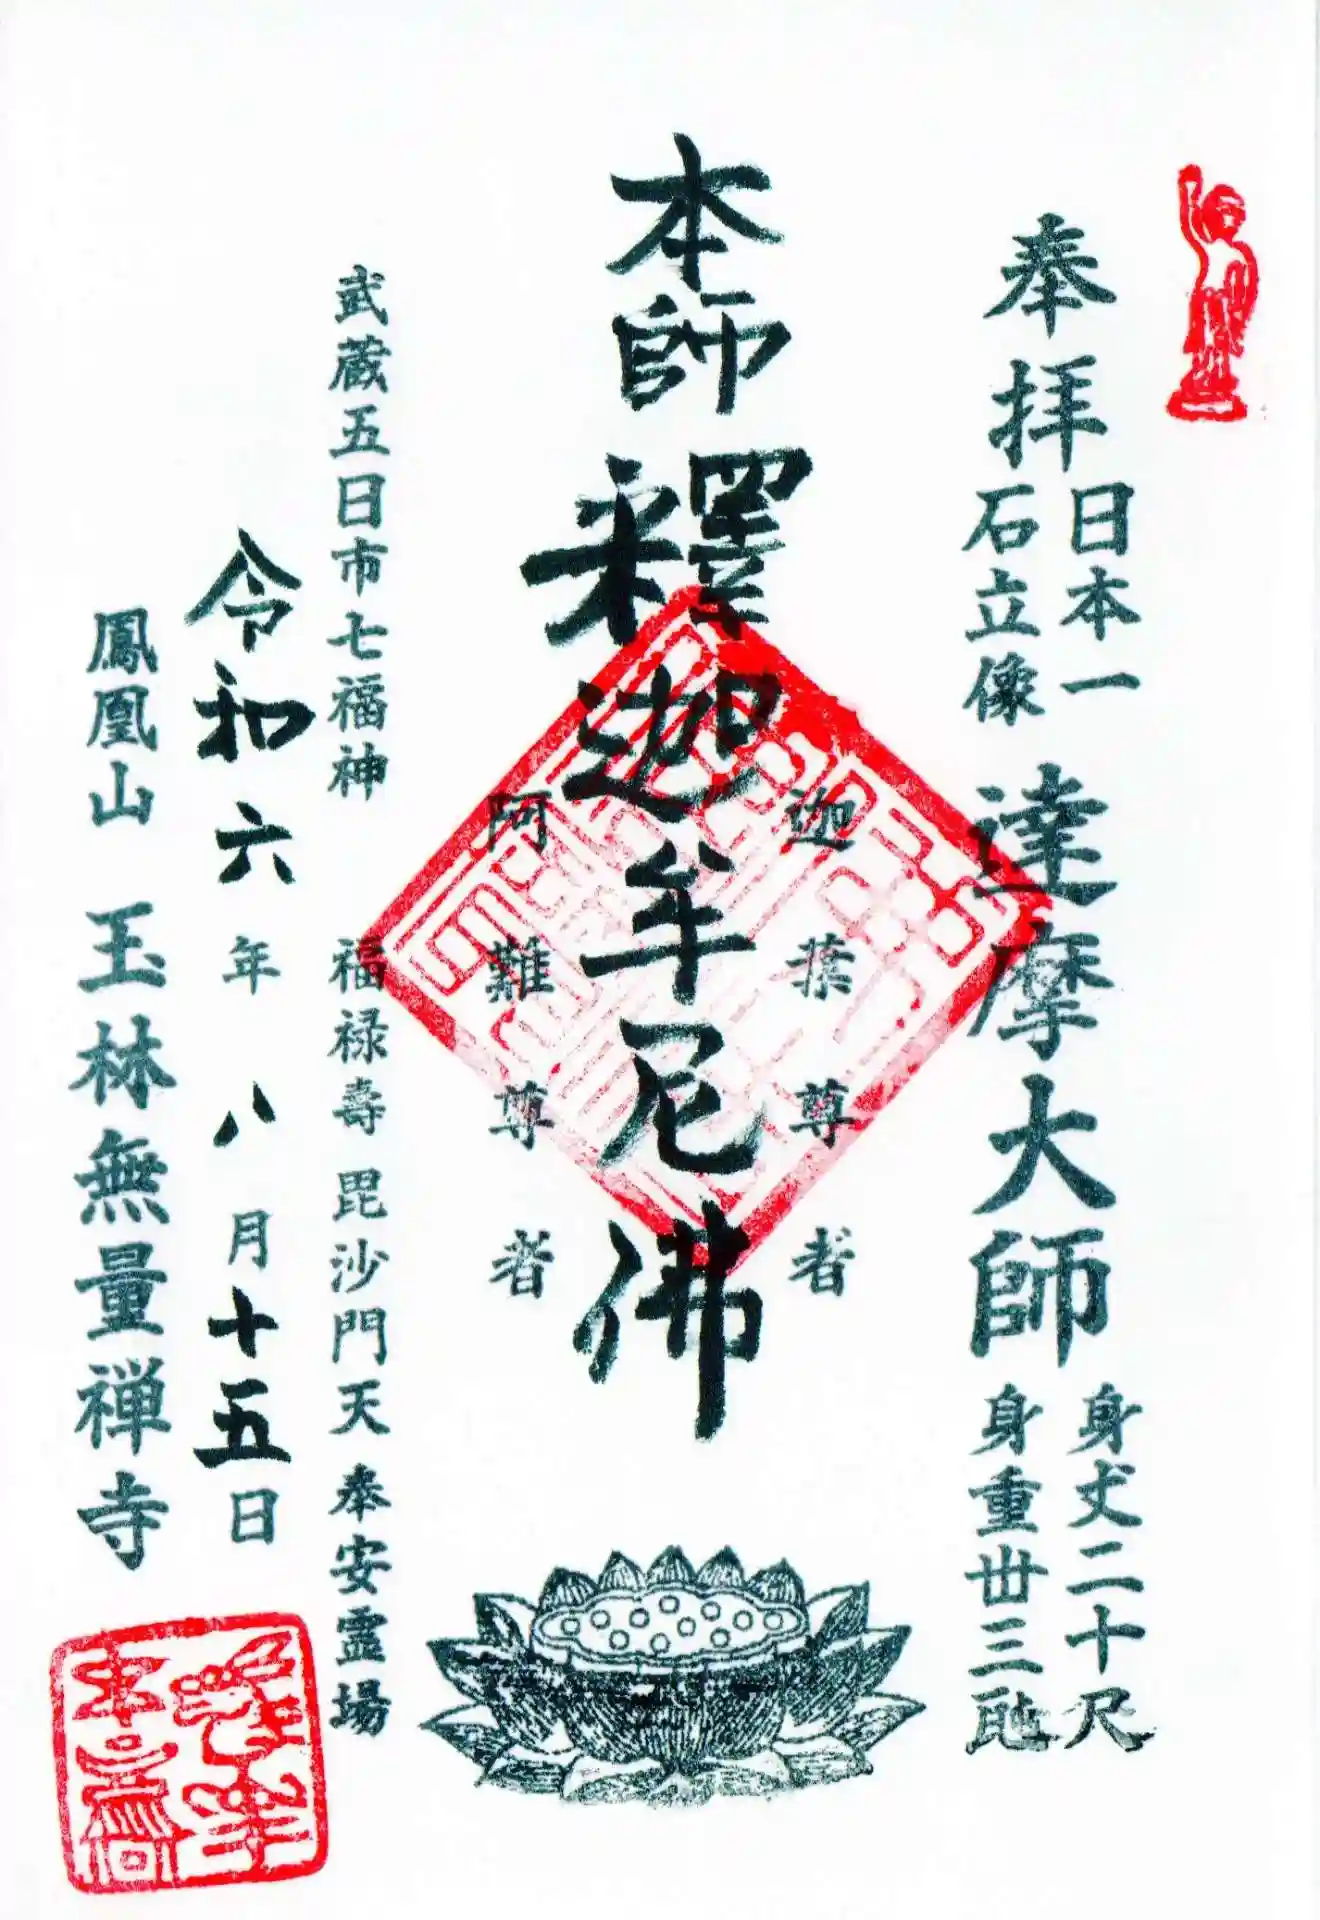 奉拝
日本一
石立像
達摩大師
身丈二十尺
身重丗三瓲
迦葉尊者
本師釋迦牟尼佛
阿難尊者
武蔵五日市七福神 福禄壽 毘沙門天 奉安霊場
令和六年八月十五日
鳳凰山 玉林無量禅寺